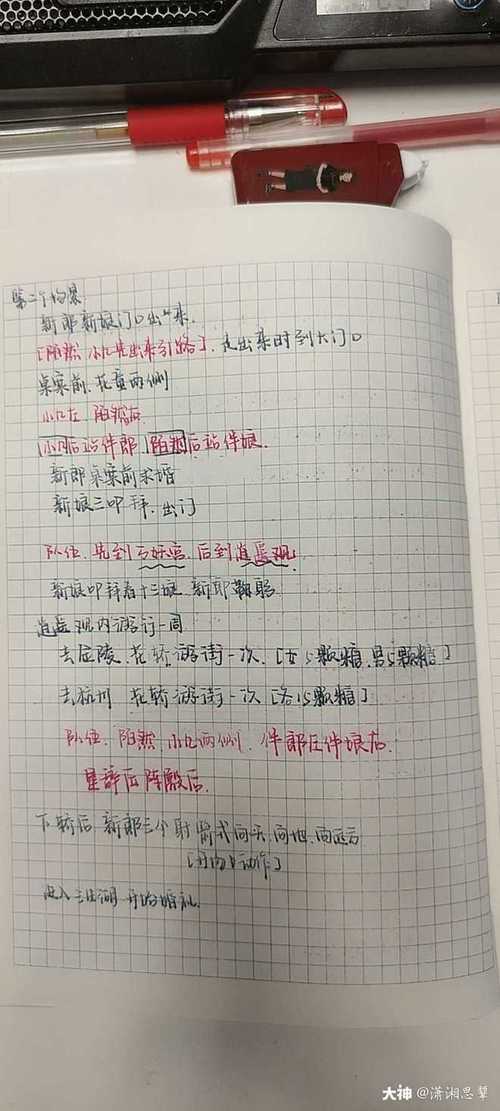 第二个场景
新郎新娘门口出来.
[陌然 小九先出来引路]. 走出来时到大门口
桌案前,花童两侧
小九左 陌然右
小九后站伴郎 陌然后站伴娘.
新郎桌案前求婚
新娘三叩拜,出门
队伍.先到 后到逍遥观.
新娘叩拜 十三娘. 新郎鞠躬
逍遥观内游行一周
去金陵.花轿游街一次.[女15颗糖.男15颗糖]
去杭州 花轿游街一次 [各15颗糖]
队伍.陌然.小九两侧.伴郎左伴娘右.
星辞后 殿后.
下轿后 新郎三个射箭式向天.向地.向远方
[动作]
进入三生湖 开始婚礼.
大神 @潇湘思犂